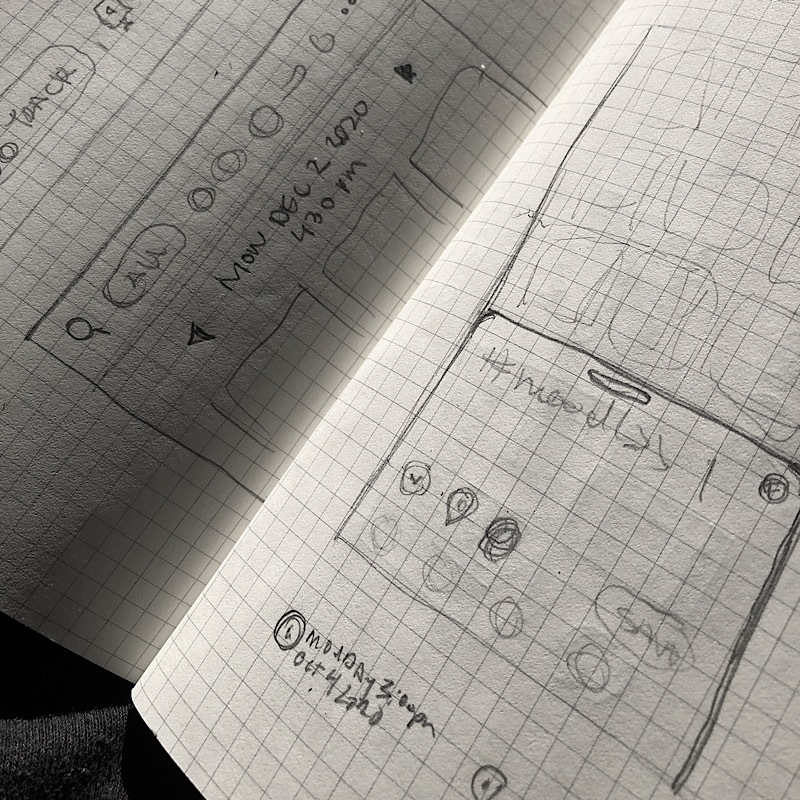 TRACK
ALL
MON DEC 2 2020
430 PM
SAVE
MONDAY 3:00pm
Oct 4 2020